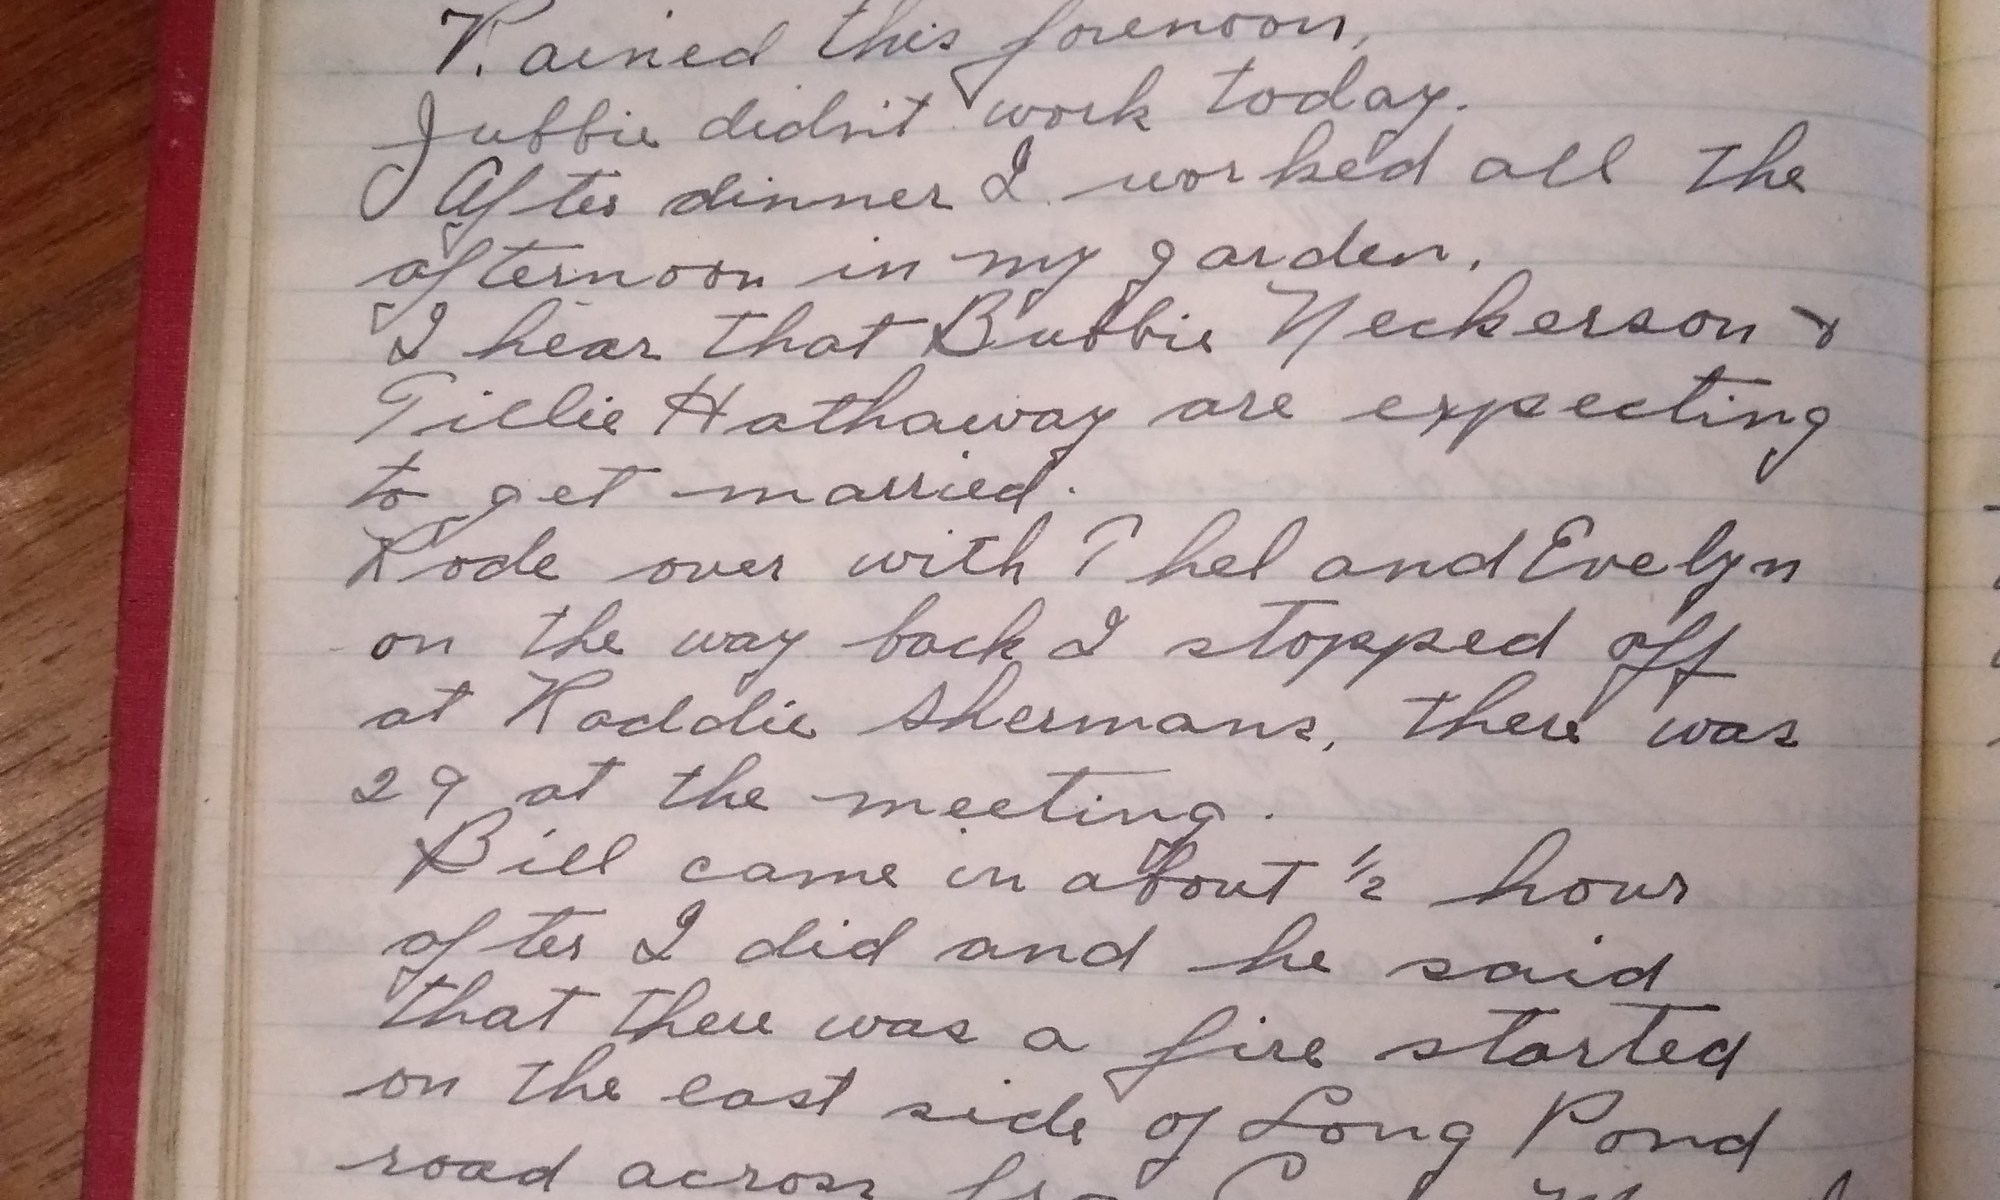 Rained this forenoon,
Jubbie didn't work today.
After dinner I worked all the
afternoon in my garden.
I hear that Bubbie Neckerson &
Tillie Hathaway are expecting
to get married.
Rode over with Thel and Evelyn
on the way back I stopped off
at Raddie Shermans, there was
29 at the meeting.
Bill came in about ½ hour
after I did and he said
that there was a fire started
on the east side of Long Pond
road across